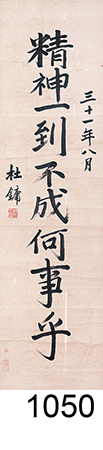 三十一年八月
精神一到不成何事乎
杜鏞
1050